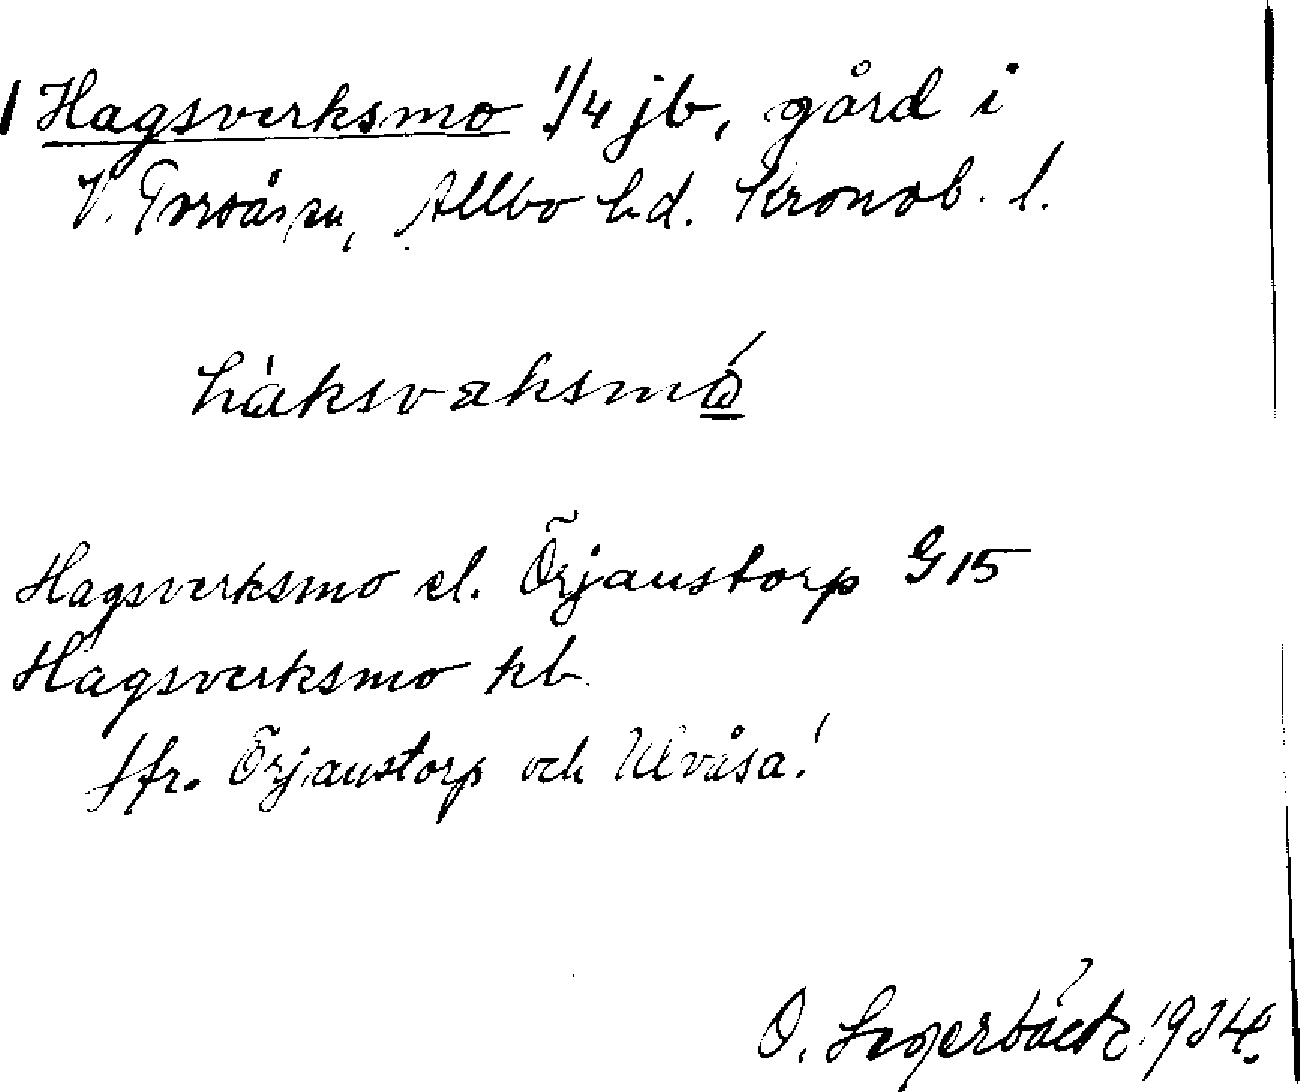 Hagsverksmo 1/4 jb, gård i
V. Torsås sn, Allbo hd. Kronob. l.
hàksvaksmó
Hagsverksmo el. Örjanstorp G 15
Hagsverksmo kb
Jfr. Örjanstorp och Ulvåsa!
O. Segerbäck 1934.